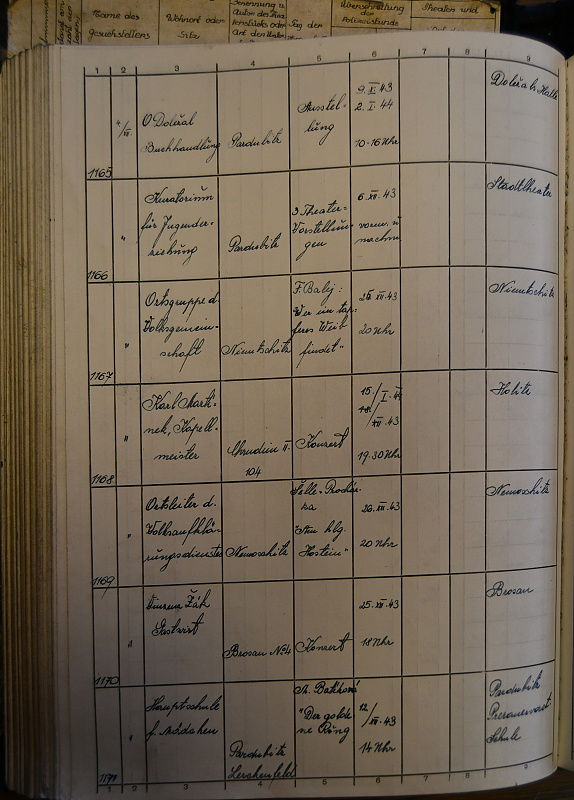 Name des
Gesuchstellers
Wohnort oder
Sitz
Benennung u.
Art der
Tag der
Überschreitung
der
Polizeistunde
Theater und
1 2 3 4 5 6 7 8 9
1165
4/XII.
O Doležal
Buchhandlung
Pardubitz
Ausstel-
lung
9. XI. 43
2. I. 44
10-16 Uhr
Doležals Halle
1166
"
Kuratorium
für Jugender-
ziehung
Pardubitz
3 Theater-
Vorstellun-
gen
6. XII. 43
vorm. u
nachm
Stadttheater
1167
"
Ortsgruppe d.
Volksgemein-
schaft
Niemtschitz
F. Balej:
"Wer ein tap-
feres Weib
findet"
25. XII. 43
20 Uhr
Niemtschitz
1168
"
Karl Marti-
nek, Kapell-
meister
Chrudim II.
104
Konzert
15./I. 44
XII. 43
19.30 Uhr
Holitz
1169
"
Ortsleiter d.
Volksaufklä-
rungsdienstes
Nemoschitz
Želle-Procház-
ka
Hostein"
20 Uhr
Nemoschitz
1170
"
Žák
Gastwirt
Brosan No 4
Konzert
25. XII. 43
18 Uhr
Brosan
1171
"
Hauptschule
f. Mädchen
Pardubitz
Lerchenfeld
"Der golde
ne Ring
12/XII. 43
14 Uhr
Pardubitz
Schule
1 2 3 4 5 6 7 8 9